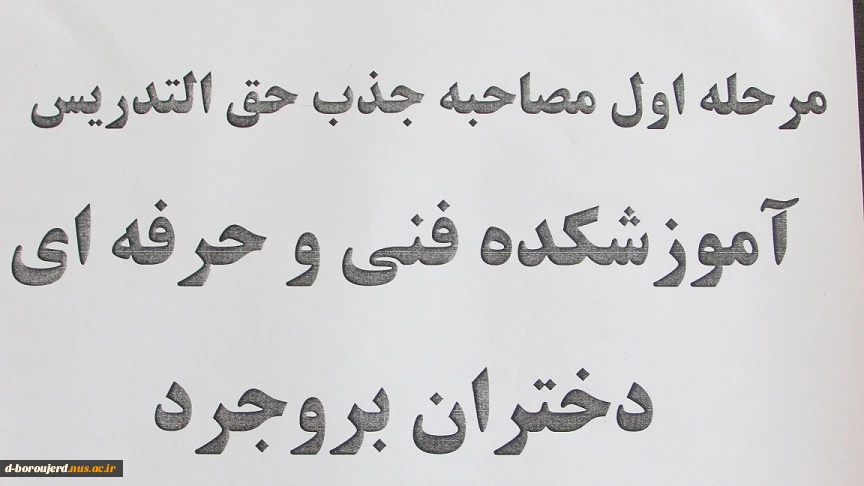 مرحله اول مصاحبه جذب حق التدریس
آموزشکده فنی و حرفه ای
دختران بروجرد
d-boroujerd.nus.ac.ir